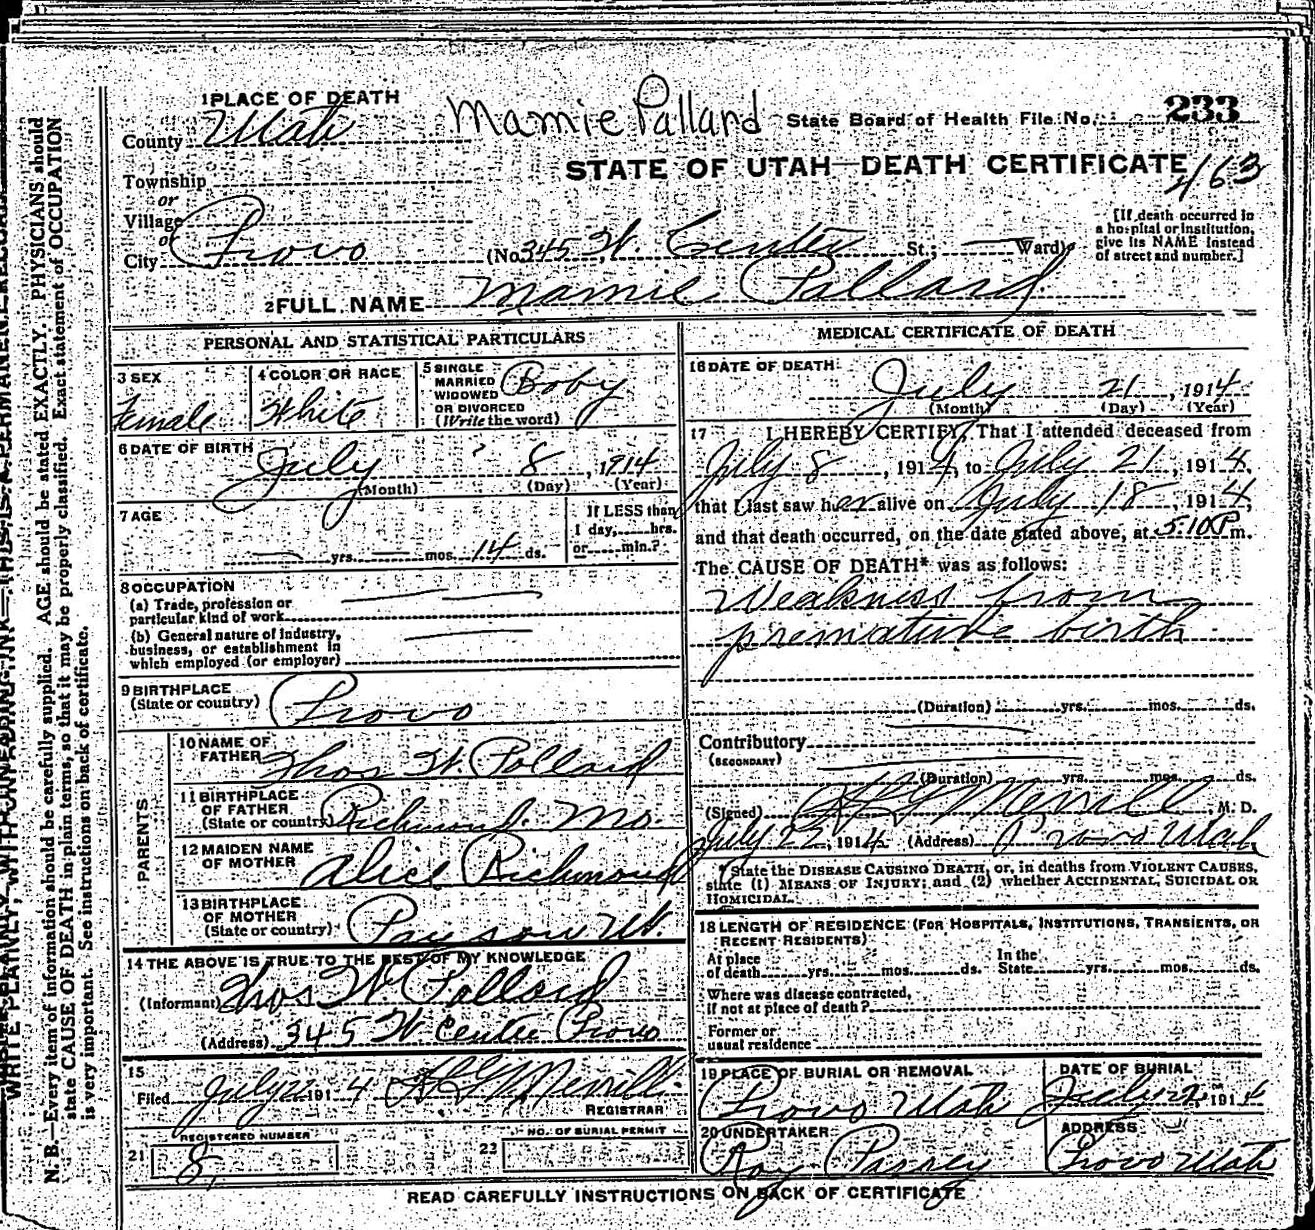 1 PLACE OF DEATH
Mamie Pallard
State Board of Health File No. 233
County Utah
STATE OF UTAH—DEATH CERTIFICATE
463
Township
or
Village
or
City Provo (No. 345 W. Center St.; Ward)
[If death occurred in a hospital or institution, give its NAME instead of street and number.]
2 FULL NAME Mamie Pallard
PERSONAL AND STATISTICAL PARTICULARS
3 SEX Female
4 COLOR OR RACE White
5 SINGLE MARRIED WIDOWED OR DIVORCED (Write the word) Baby
6 DATE OF BIRTH July 8, 1914
(Month) (Day) (Year)
7 AGE
yrs. mos. 14 ds.
If LESS than
1 day, hrs.
or min.?
8 OCCUPATION
(a) Trade, profession or
particular kind of work
(b) General nature of industry,
business, or establishment in
which employed (or employer)
9 BIRTHPLACE
(State or country) Provo
PARENTS
10 NAME OF FATHER Thos W. Pollard
11 BIRTHPLACE OF FATHER (State or country) Richmond. Mo.
12 MAIDEN NAME OF MOTHER Alice Richmond
13 BIRTHPLACE OF MOTHER (State or country) Payson Ut.
14 THE ABOVE IS TRUE TO THE BEST OF MY KNOWLEDGE
(Informant) Thos W Pollard
(Address) 345 W Center Provo
15
Filed July 22 1914 H G Merrill.
REGISTRAR
REGISTERED NUMBER
21 8
NO. OF BURIAL PERMIT
22
MEDICAL CERTIFICATE OF DEATH
16 DATE OF DEATH July 21, 1914
(Month) (Day) (Year)
17 I HEREBY CERTIFY, That I attended deceased from
July 8, 1914, to July 21, 1914,
that I last saw her alive on July 18, 1914,
and that death occurred, on the date stated above, at 5:10 P m.
The CAUSE OF DEATH* was as follows:
Weakness from
premature birth
(Duration) yrs. mos. ds.
Contributory
(SECONDARY)
(Duration) yrs. mos. ds.
(Signed) H G Merrill, M. D.
July 22, 1914 (Address) Provo Utah
*State the DISEASE CAUSING DEATH, or, in deaths from VIOLENT CAUSES,
state (1) MEANS OF INJURY; and (2) whether ACCIDENTAL, SUICIDAL OR
HOMICIDAL.
18 LENGTH OF RESIDENCE (FOR HOSPITALS, INSTITUTIONS, TRANSIENTS, OR
RECENT RESIDENTS)
At place of death yrs. mos. ds. In the State yrs. mos. ds.
Where was disease contracted,
if not at place of death?
Former or
usual residence
19 PLACE OF BURIAL OR REMOVAL Provo Utah
DATE OF BURIAL July 1914
20 UNDERTAKER Ray Passey
ADDRESS Provo Utah
READ CAREFULLY INSTRUCTIONS ON BACK OF CERTIFICATE
WRITE PLAINLY, WITH UNFADING INK—THIS IS A PERMANENT RECORD
N. B.—Every item of information should be carefully supplied. AGE should be stated EXACTLY. PHYSICIANS should
state CAUSE OF DEATH in plain terms, so that it may be properly classified. Exact statement of OCCUPATION
is very important. See instructions on back of certificate.